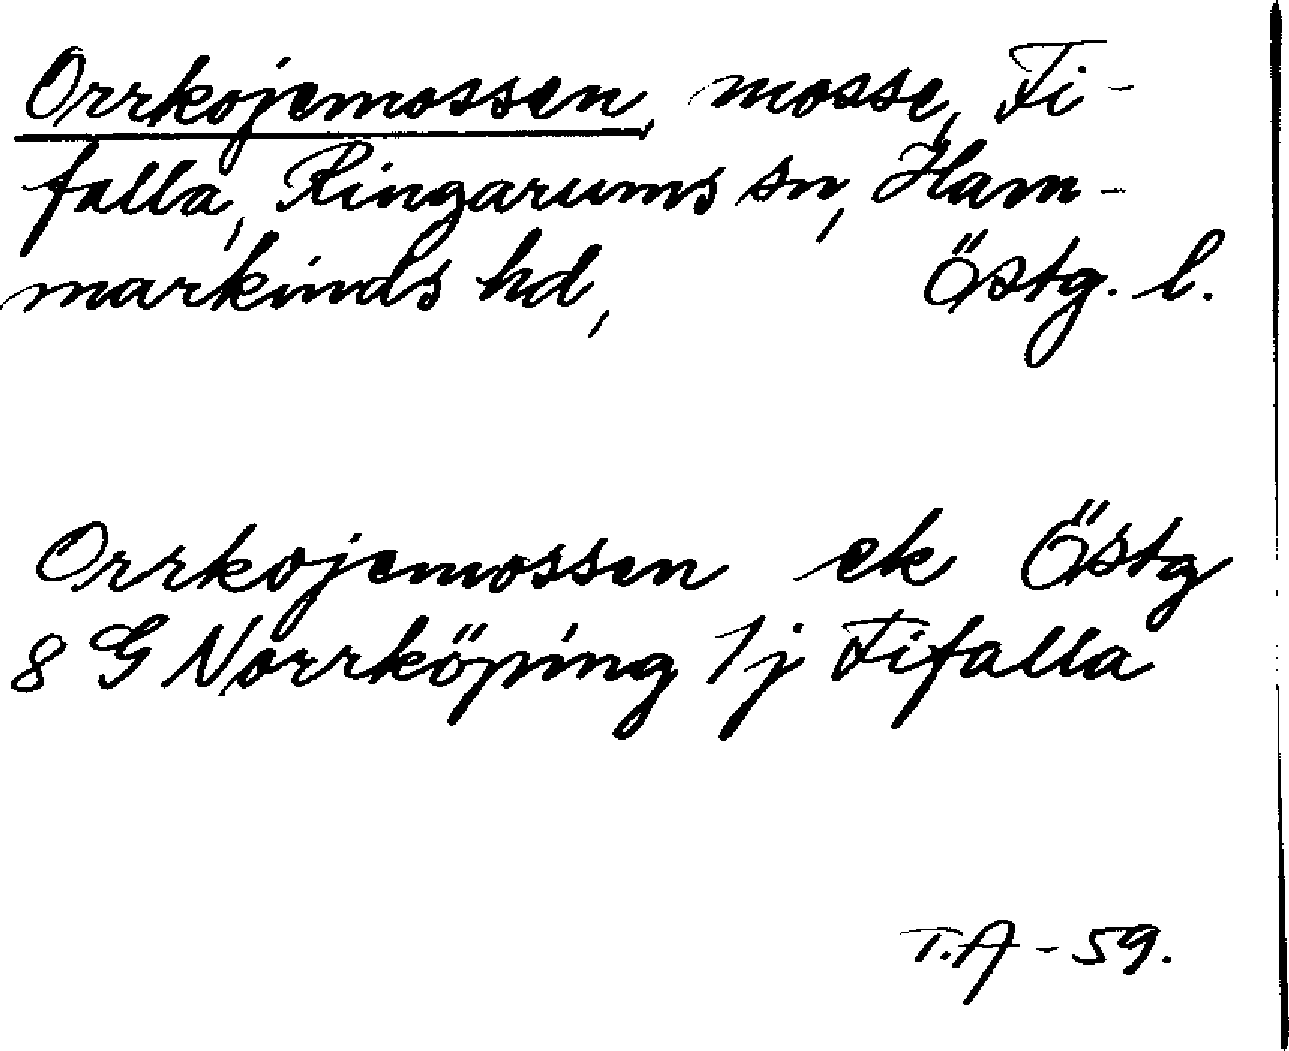 Orrkojemossen, mosse, Fi-
falla, Ringarums sn, Ham-
markinds hd, Östg. l.
Orrkojemossen ek Östg
8 G Norrköping 1j Fifalla
T.A - 59.